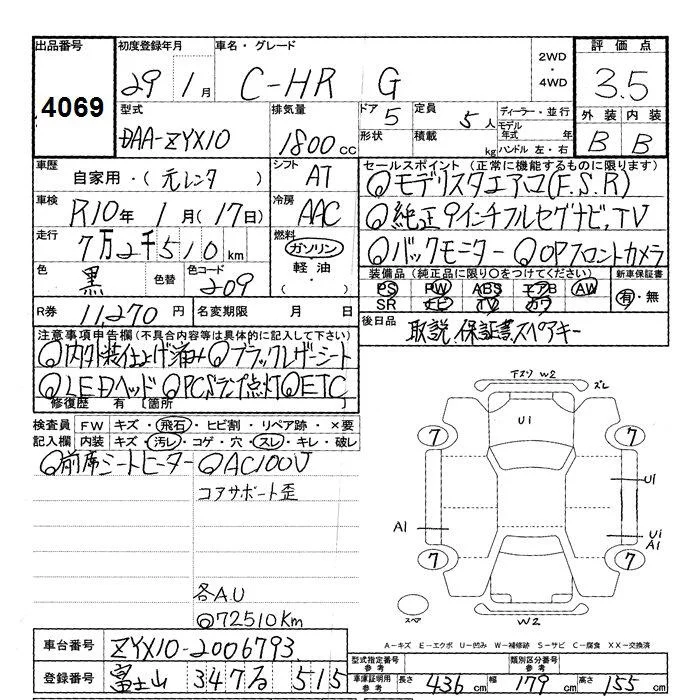 出品番号 初度登録年月 車名・グレード 2WD・4WD 評価点
4069 29年 1月 C-HR G 3.5
型式 排気量 ドア 定員 ディーラー・並行 外装 内装
DAA-ZYX10 1800cc 5 5人 モデル年式 年 B B
形状 積載 kg ハンドル 左・右
車歴 シフト セールスポイント(正常に機能するものに限ります)
自家用・(元レンタ) AT ◎モデリスタエアロ(F.S.R)
車検 冷房 ◎純正9インチフルセグナビ,TV
R10年 1月(17日) AAC
走行 燃料 ◎バックモニター ◎OPフロントカメラ
7万2千510km ガソリン・軽油・
色 色替 色コード 装備品(純正品に限り○をつけてください) 新車保証書
黒 209 PS PW ABS エアB AW 有・無
SR ナビ TV カワ
R券 11,270円 名変期限 月 日 後日品 取説,保証書,スペアキー
注意事項申告欄(不具合内容等は具体的に記入して下さい)
◎内外装仕上げ済み ◎ブラックレザーシート
◎LEDヘッド ◎PCSランプ点灯 ◎ETC
修復歴 有[箇所
検査員 FW キズ・飛石・ヒビ割・リペア跡・×要
記入欄 内装 キズ・汚レ・コゲ・穴・スレ・キレ・破レ
◎前席シートヒーター ◎AC100V
コアサポート歪
各A.U
◎72510Km
下スリ W2 ズレ
U1
7 7
U1
A1 U1 A1
7 7
スペア W2
A-キズ E-エクボ U-凹み W-補修跡 S-サビ C-腐食 XX-交換済
車台番号 ZYX10-2006793 型式指定番号参考 類別区分番号参考
登録番号 富士山 347 る 515 車庫証明用参考 長さ 436cm 幅 179cm 高さ 155cm